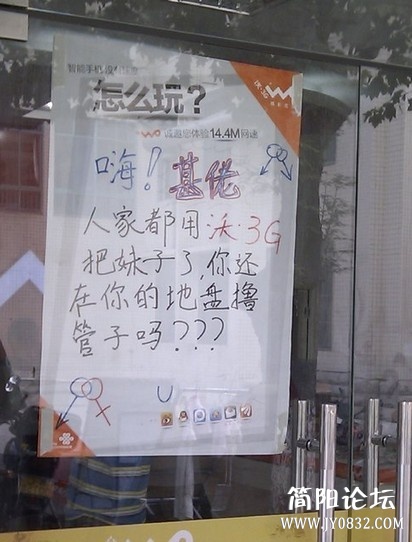 智能手机没有
怎么玩?
沃·3G
诚邀您体验14.4M网速
嗨! 基佬
人家都用沃·3G
把妹子了,你还
在你的地盘撸
管子吗???
简阳论坛
www.JY0832.com